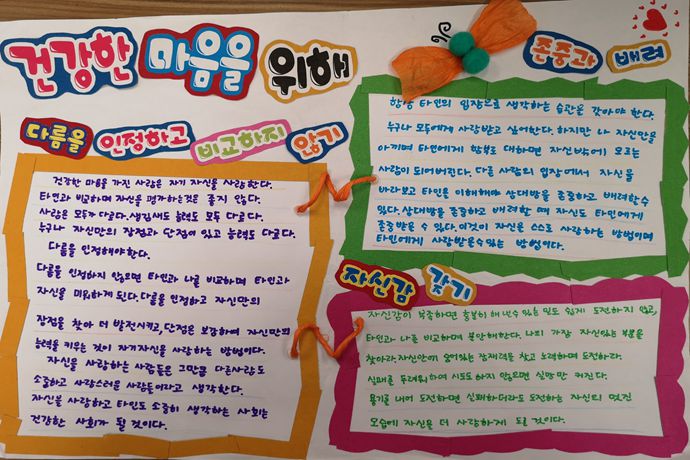 건강한 마음을 위해
다름을 인정하고 비교하지 않기
건강한 마음을 가진 사람은 자기 자신을 사랑한다.
타인과 비교하며 자신을 평가하는것은 좋지 않다.
사람은 모두가 다르다. 생김새도 능력도 모두 다르다.
누구나 자신만의 장점과 단점이 있고 능력도 다르다.
다름을 인정해야한다.
다름을 인정하지 않으면 타인과 나를 비교하며 타인과
자신을 미워하게 된다. 다름을 인정하고 자신만의
장점을 찾아 더 발전시키고, 단점은 보완하여 자신만의
능력을 키우는 것이 자기자신을 사랑하는 방법이다.
자신을 사랑하는 사람들은 그만큼 다른사람도
소중하고 사랑스러운 사람들이라고 생각한다.
자신을 사랑하고 타인도 소중히 생각하는 사회는
건강한 사회가 될 것이다.
존중과 배려
항상 타인의 입장으로 생각하는 습관을 갖아야 한다.
누구나 모두에게 사랑받고 싶어한다. 하지만 나 자신만을
아끼며 타인에게 함부로 대하면 자신밖에 모르는
사람이 되어버린다. 다른 사람의 입장에서 자신을
바라보고 타인을 이해해야 상대방을 존중하고 배려할수
있다. 상대방을 존중하고 배려할 때 자신도 타인에게
존중받을 수 있다. 이것이 자신을 스스로 사랑하는 방법이며
타인에게 사랑받을수있는 방법이다.
자신감 갖기
자신감이 부족하면 충분히 해낼수 있는 일도 쉽게 도전하지 않고,
타인과 나를 비교하며 불안해한다. 나의 가장 자신있는 부분을
찾아라. 자신안에 숨어있는 잠재력을 찾고 노력하며 도전하라.
실패를 두려워하여 시도도 하지 않으면 실망만 커진다.
용기를 내어 도전하면 실패하더라도 도전하는 자신의 멋진
모습에 자신을 더 사랑하게 될 것이다.